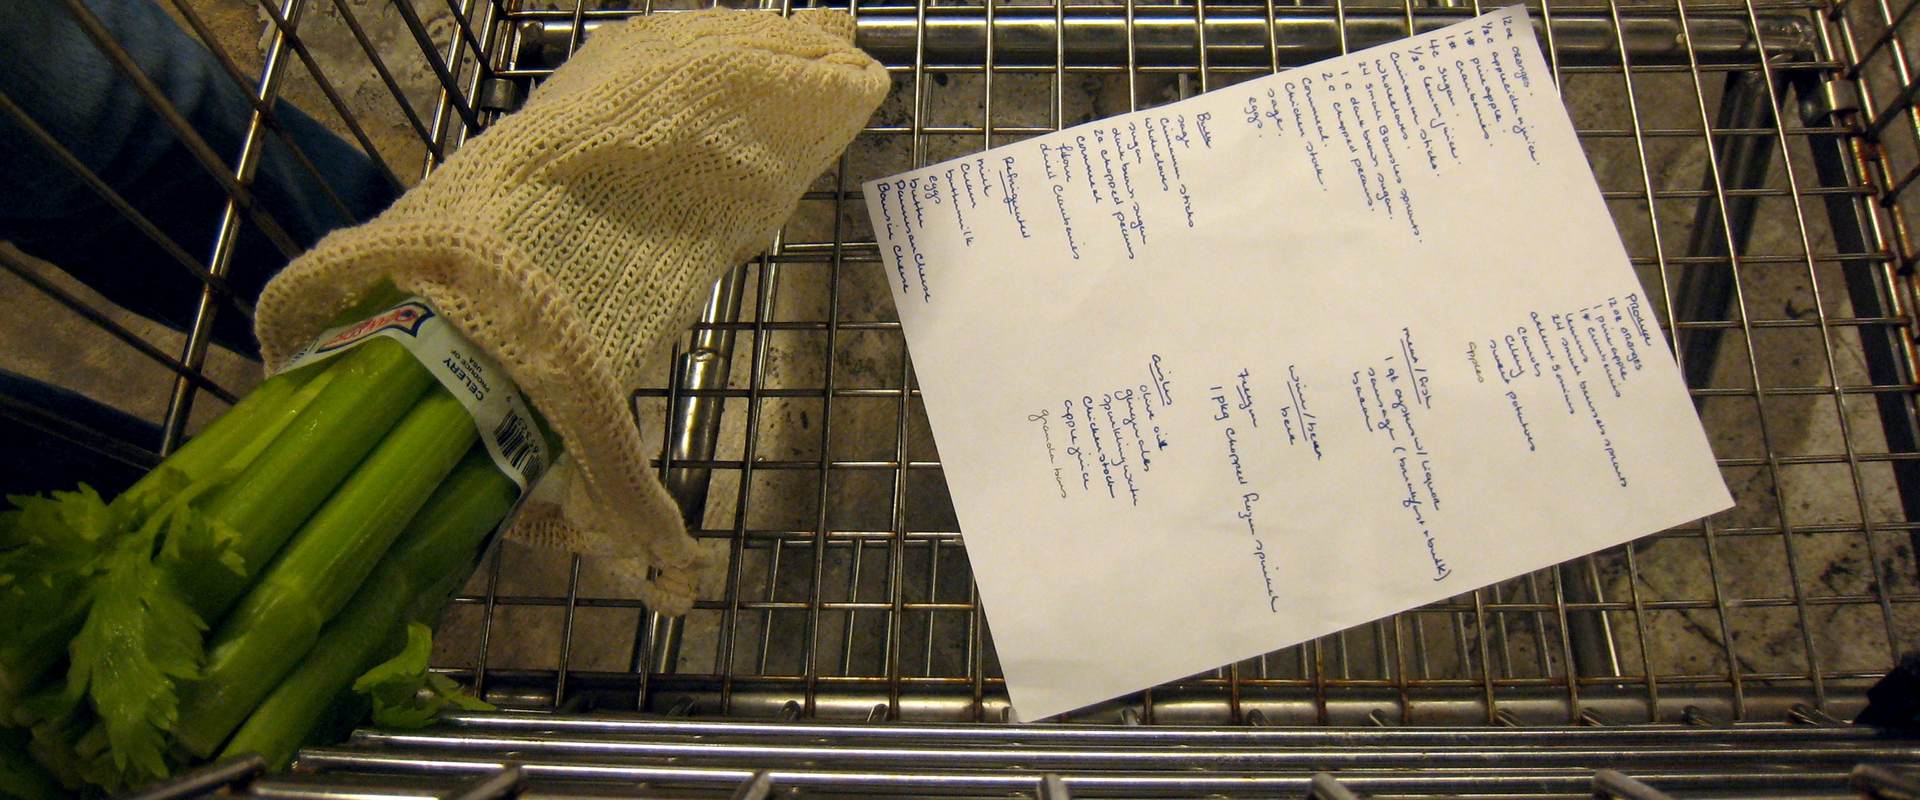 12 oz oranges.
1/2 c apple cider juice.
1# pineapple.
1# cranberries.
4c sugar.
1/2 c lemon juice.
cinnamon sticks.
whole cloves.
24 small brussles sprouts.
1 c dark brown sugar.
2 c chopped pecans.
cornmeal.
chicken stock.
sage.
eggs.
sage
cinnamon sticks
whole cloves
sugar
dark brown sugar
2c chopped pecans
cornmeal
flour
dried cranberries
Refrigerated
milk
cream
buttermilk
eggs
butter
Parmesan cheese
Boursin cheese
Produce
12 oz oranges
1 pineapple
1# cranberries
lemons
24 small brussels sprouts
carrots
celery
sweet potatoes
apples
meat/fish
1 qt oysters w/ liquor
sausage (breakfast + bulk)
bacon
wine/beer
beer
frozen
1 pkg chopped frozen spinach
aisles
olive oil
gingerales
sparkling water
chicken stock
apple juice
granola bars
CELERY
PRODUCE OF
USA